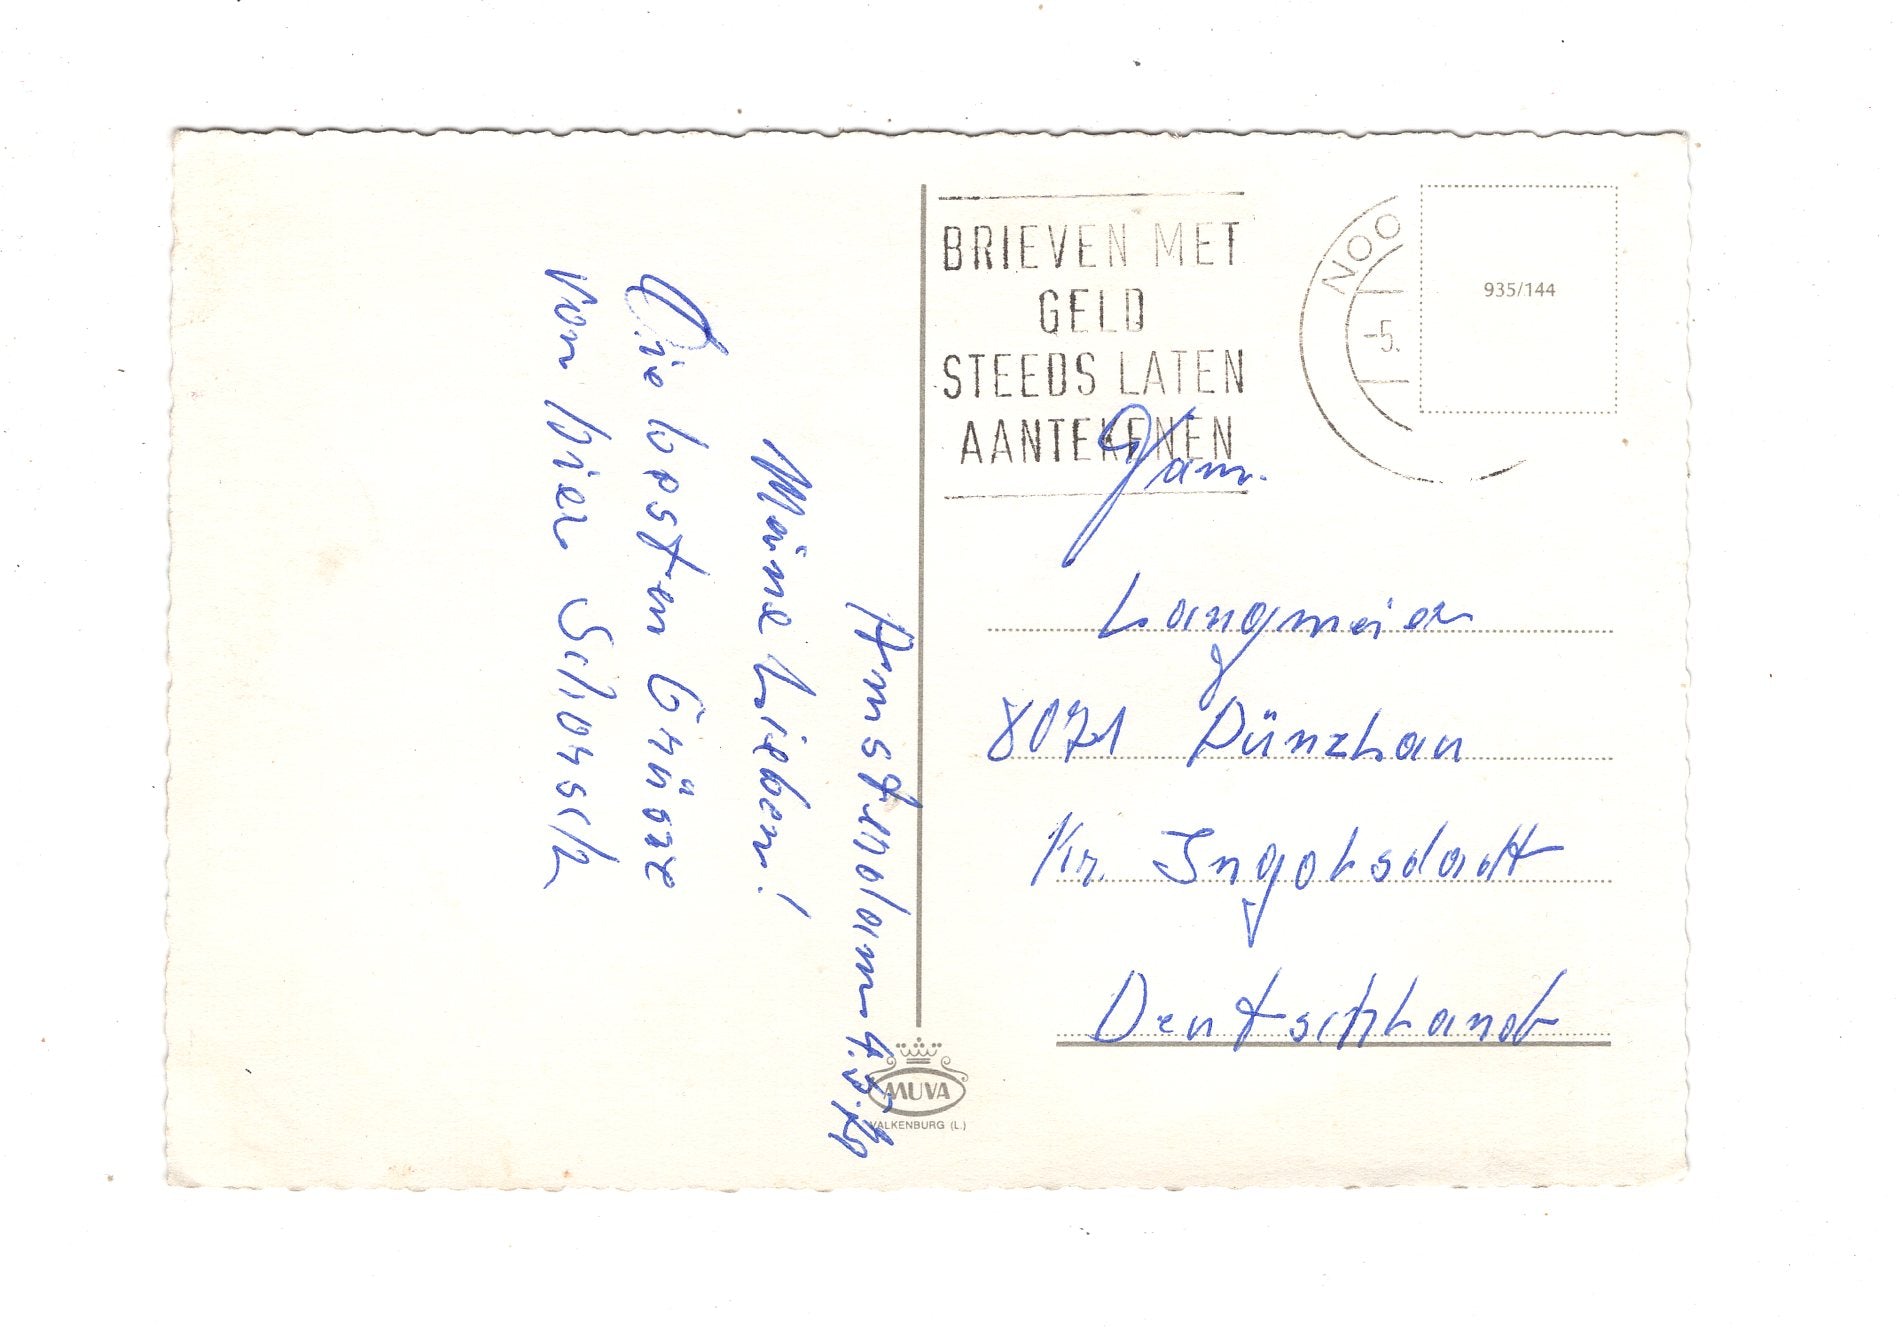 Amsterdam 4.5.79
Meine Lieben!
Die besten Grüsze
von hier Schorsch
BRIEVEN MET
GELD
STEEDS LATEN
AANTEKENEN
NOO
-5.
935/144
Fam.
Langmeier
8071 Dünzlau
Kr. Ingolsdadt
Deutschland
MUVA
VALKENBURG (L.)